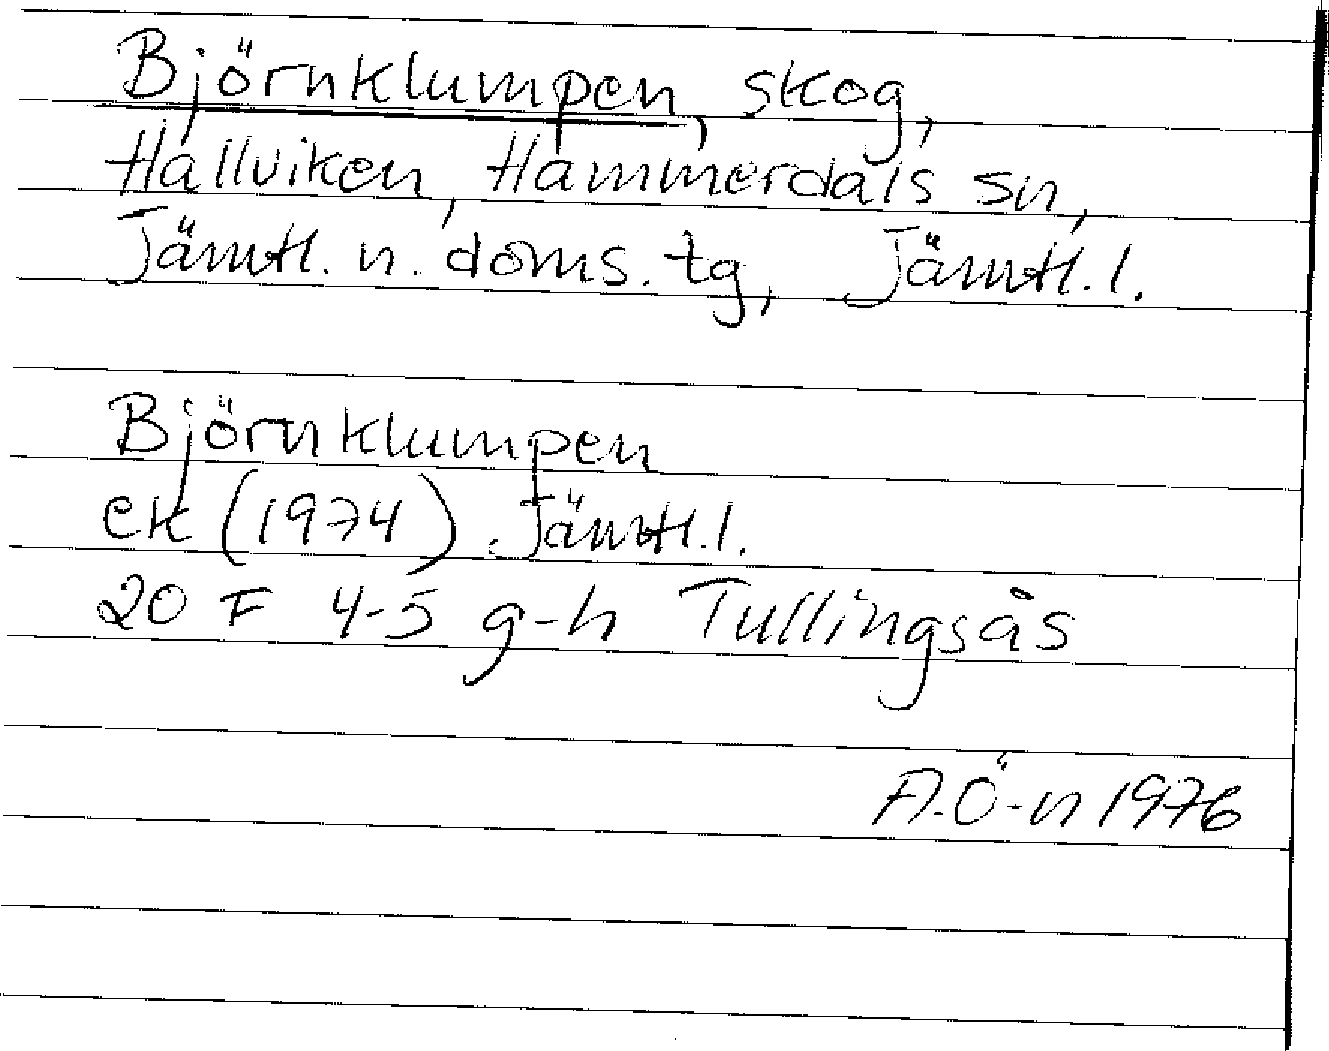 Björnklumpen, skog,
Hallviken, Hammerdals sn,
Jämtl. n. doms. tg, Jämtl. l.
Björnklumpen
ek (1974) Jämtl. l.
20 F 4-5 g-h Tullingsås
A.Ö-n 1976